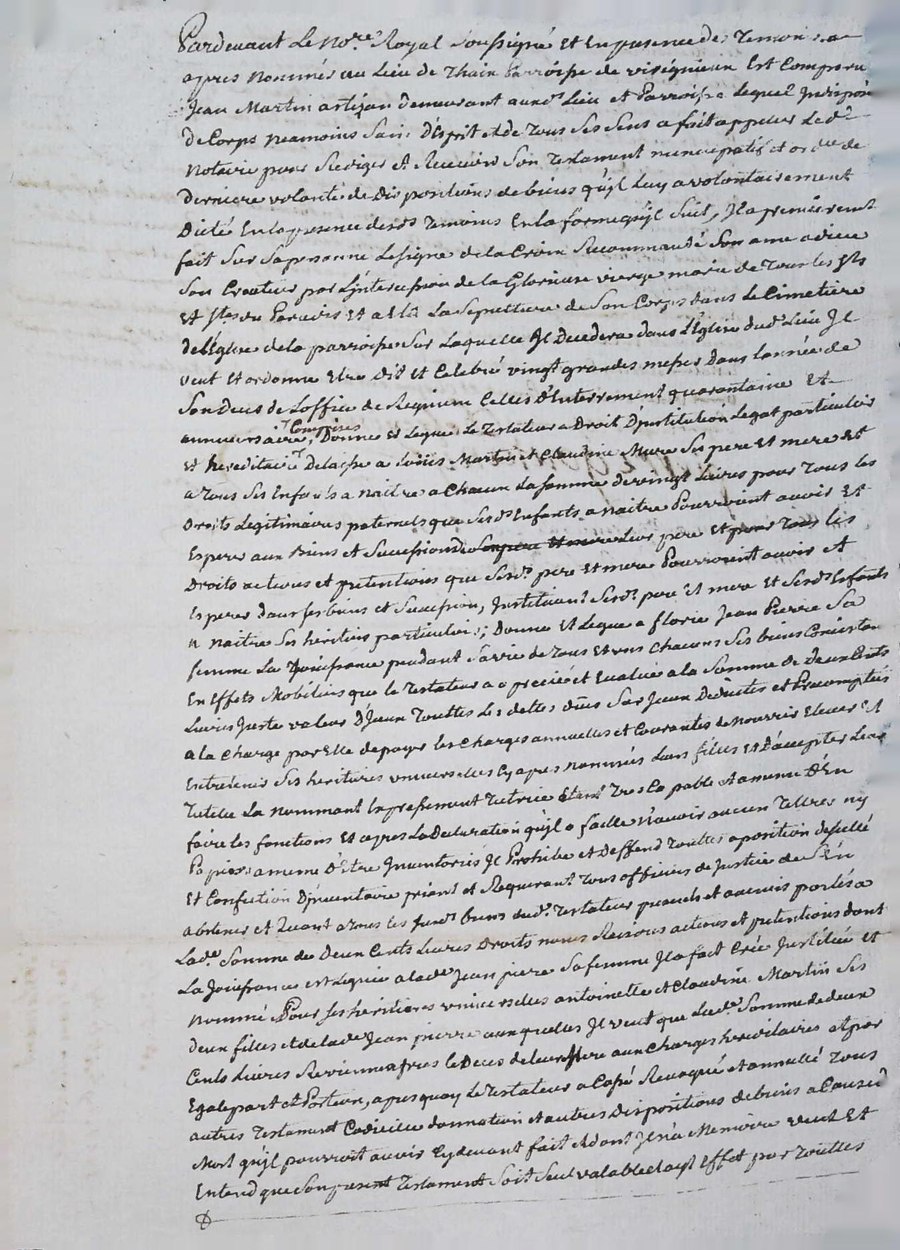 Pardevant Le No.re Royal Soussigné Et En presence des Temoins cy
apres nommés au Lieu de Thain Parroisse de Est Comparu
Jean Martin artizan demeurant aud.t Lieu et Parroisse Lequel Indisposé
de Corps neamoins Sain D'Esprit et de Tous Ses Sens a fait appeller Led.t
Notaire pour Rediger et Recevoir Son Testament nuncupatif et ord.re de
Derniere volonté de Dispositions de biens qu'jl Luy a volontairement
Dicté En la presence desd.s Temoins En la forme qu'jl Suit, Jl a premierement
fait Sur Sa personne Le Signe de la Croix Recommandé Son ame a dieu
Son Createur par L'intercession de la Glorieuse vierge marie de Tous les Sts
Et S.tes du Paradis Et a Elû La Sepulture de Son Corps dans Le Cimetiere
de L'Eglise de la parroisse Sur Laquelle Jl Decedera dans L'Eglise dud.t Lieu Jl
veut Et ordonne Etre dit et Celebré vingt grandes messes Dans Lannée de
Son Deces de L'office de Requiem Celles D'Enterrement quarantaine Et
anniversaire Comprises, Donne Et Legue Le Testateur a Droit D'jnstitution Legat particulier
Et hereditaire Delaisse a Loüis Martin et Claudine Mure Ses pere Et mere Et
a Tous Ses Enfants a naitre a Chacun La Somme de vingt Livres pour Tous les
Droits Legitimaires paternels que Sesd.s Enfants a naitre Pourroient avoir Et
Esperer aux Biens et Succession de Son pere Et mere Leur pere Et pour Tous les
Droits actions et pretentions que Sesd.s pere Et mere Pourroient avoir et
Esperer dans Ses biens et Succession, Instituant Sesd.s pere Et mere Et Sesd.s Enfants
a naitre Ses heritiers particuliers; Donne Et Legue a florie Jean Pierre Sa
femme La Joüissance pendant Sa vie de Tous Et uns Chacuns Ses biens Consistan
En Effets Mobiliers que le Testateur a apreciés et Evalués a la Somme de Deux Cents
Livres Juste valeur D'Jceux Touttes Les dettes düs Sur Jceux Deduites et Precomptées
a la Charge par Elle de payer les Charges annuelles et Courantes de Nourrir Elever Et
Entretenir Ses heritieres universelles Cy apres nommées Leurs filles Et D'accepter Leur
Tutelle La nommant Expressement Tutrice Etant Tres Capable Et a meme D'En
faire les fonctions Et apres La Declaration qu'jl a faitte N'avoir aucun Tiltres ny
Papiers a meme D'Etre Jnventoriés Jl Prohibe et Deffend Touttes aposition de scellé
Et Confection D'jnventaire priant et Requerant Tous officiers de Justice de S'En
abstenir et Quant a Tous les Surd.s biens dud.t Testateur presents et avenir portés a
Lad.te Somme de Deux Cents Livres Droits noms Raisons actions et pretentions dont
La Joüissance est Leguée a lad.te Jean pierre Sa femme Jl a fait Crée Jnstitüé Et
nommé Pour Ses heritieres universelles antoinette et Claudine Martin Ses
deux filles et de lad.te Jean pierre auxquelles Jl veut que Lad.te Somme de deux
Cents Livres Revienne apres le Deces de leur Mere aux Charges hereditaires et par
Egale part et Portion, apres quoy Le Testateur a Cassé Revoqué et annullé Tous
autres Testament Codicille donnation et autres Dispositions de biens a Cause de
Mort qu'jl pourroit avoir Cydevant fait et dont Jl n'a Memoire veut Et
Entend que Son present Testament Soit Seul valable et ayt Effet par Touttes